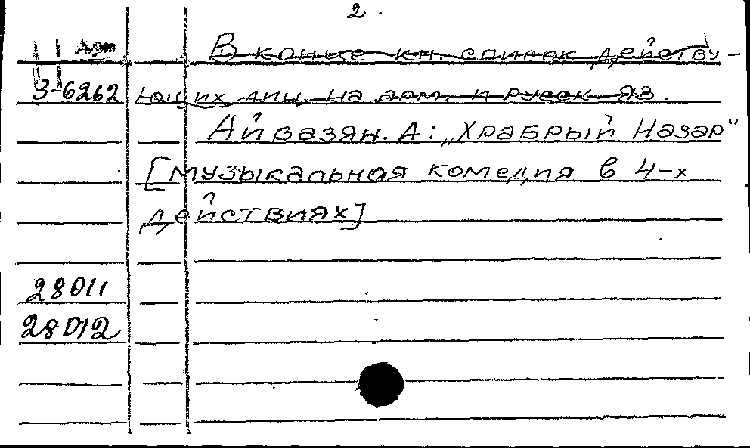 2.
В конце кн. список действу-
3-6262 ющих лиц на арм. и русск яз.
Айвазян. А: „Храбрый Назар"
[музыкальная комедия в 4-х
действиях]
28011
28012